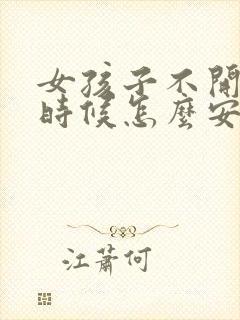 女孩子不開
時候怎麼安
江蕭何